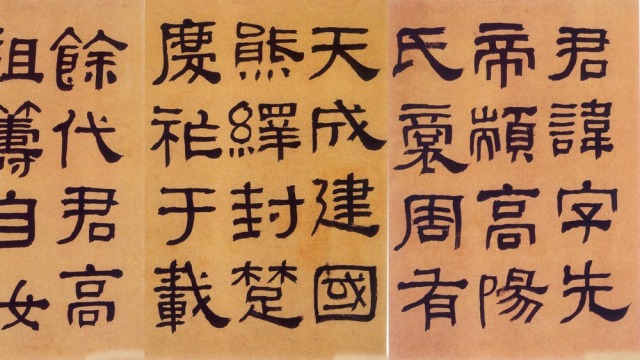 君諱字先
帝顓高陽
氏裔周有
天成建國
熊繹封楚
慶祚于載
餘代君高
籌自